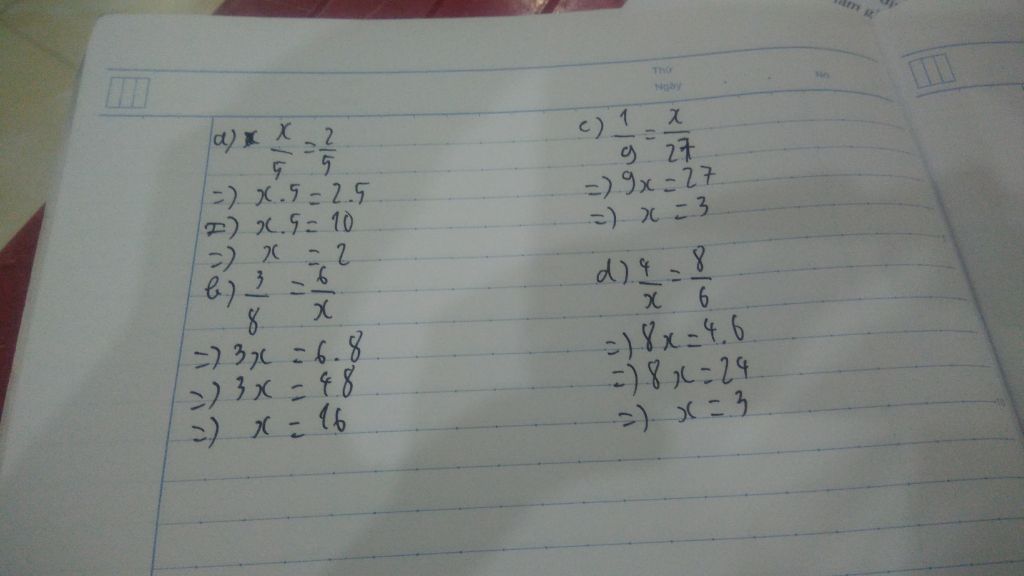 Thứ
Ngày
No
a) x/5 = 2/5
=) x.5 = 2.5
=) x.5 = 10
=) x = 2
b) 3/8 = 6/x
=) 3x = 6.8
=) 3x = 48
=) x = 16
c) 1/9 = x/27
=) 9x = 27
=) x = 3
d) 4/x = 8/6
=) 8x = 4.6
=) 8x = 24
=) x = 3